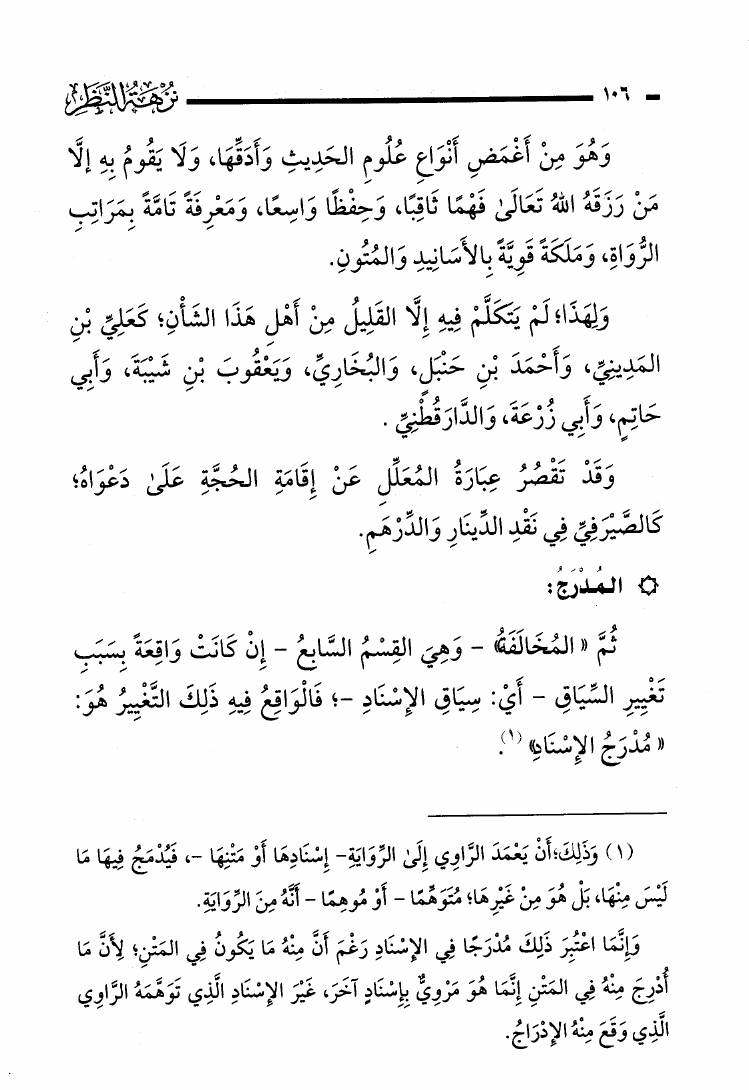 ١٠٦ نُزْهَةُ النَّظَرِ
وَهُوَ مِنْ أَغْمَضِ أَنْوَاعِ عُلُومِ الحَدِيثِ وَأَدَقِّهَا، وَلَا يَقُومُ بِهِ إلَّا
مَنْ رَزَقَهُ اللهُ تَعَالَىٰ فَهْمًا ثَاقِبًا، وَحِفْظًا وَاسِعًا، وَمَعْرِفَةً تَامَّةً بِمَرَاتِبِ
الرُّوَاةِ، وَمَلَكَةً قَوِيَّةً بِالأَسَانِيدِ وَالمُتُونِ.
وَلِهَذَا؛ لَمْ يَتَكَلَّمْ فِيهِ إِلَّا القَلِيلُ مِنْ أَهْلِ هَذَا الشَّأْنِ؛ كَعَلِيِّ بْنِ
المَدِينِيِّ، وَأَحْمَدَ بْنِ حَنْبَلٍ، وَالبُخَارِيِّ، وَيَعْقُوبَ بْنِ شَيْبَةَ، وَأَبِي
حَاتِمٍ، وَأَبِي زُرْعَةَ، وَالدَّارَقُطْنِيِّ .
وَقَدْ تَقْصُرُ عِبَارَةُ المُعَلِّلِ عَنْ إِقَامَةِ الحُجَّةِ عَلَىٰ دَعْوَاهُ؛
كَالصَّيْرَفِيِّ فِي نَقْدِ الدِّينَارِ وَالدِّرْهَمِ.
۞ المُدْرَجُ:
ثُمَّ «المُخَالَفَةُ» - وَهِيَ القِسْمُ السَّابِعُ - إِنْ كَانَتْ وَاقِعَةً بِسَبَبِ
تَغْيِيرِ السِّيَاقِ - أَيْ: سِيَاقِ الإِسْنَادِ -؛ فَالْوَاقِعُ فِيهِ ذَلِكَ التَّغْيِيرُ هُوَ:
«مُدْرَجُ الإِسْنَادِ» (١).
(١) وَذَلِكَ؛ أَنْ يَعْمَدَ الرَّاوِي إِلَىٰ الرِّوَايَةِ- إِسْنَادِهَا أَوْ مَتْنِهَا -، فَيُدْمَجُ فِيهَا مَا
لَيْسَ مِنْهَا، بَلْ هُوَ مِنْ غَيْرِهَا؛ مُتَوَهِّمًا - أَوْ مُوهِمًا - أَنَّهُ مِنَ الرِّوَايَةِ.
وَإِنَّمَا اعْتُبِرَ ذَلِكَ مُدْرَجًا فِي الإِسْنَادِ رَغْمَ أَنَّ مِنْهُ مَا يَكُونُ فِي المَتْنِ؛ لِأَنَّ مَا
أُدْرِجَ مِنْهُ فِي المَتْنِ إِنَّمَا هُوَ مَرْوِيٌّ بِإِسْنَادٍ آخَرَ، غَيْرَ الإِسْنَادِ الَّذِي تَوَهَّمَهُ الرَّاوِي
الَّذِي وَقَعَ مِنْهُ الإِدْرَاجُ.